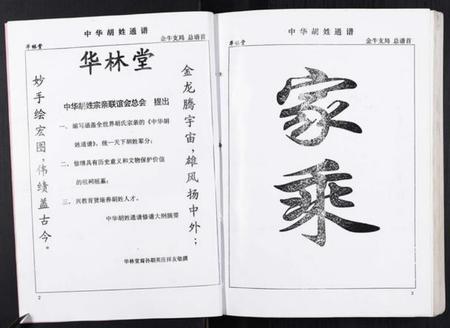 中华胡姓通谱
华林堂
金牛支局 总谱首
华林堂
金龙腾宇宙，雄风扬中外；
妙手绘宏图，伟绩盖古今。
中华胡姓宗亲联谊会总会 提出
一、编写涵盖全世界胡氏宗亲的《中华胡
姓通谱》，统一天下胡姓辈分；
二、修缮具有历史意义和文物保护价值
的祖祠祖墓；
三、兴教育贤培养胡姓人才。
中华胡姓通谱修谱大纲摘要
华林堂裔孙胡英庄祥友敬撰
2
中华胡姓通谱
华林堂
金牛支局 总谱首
家乘
3